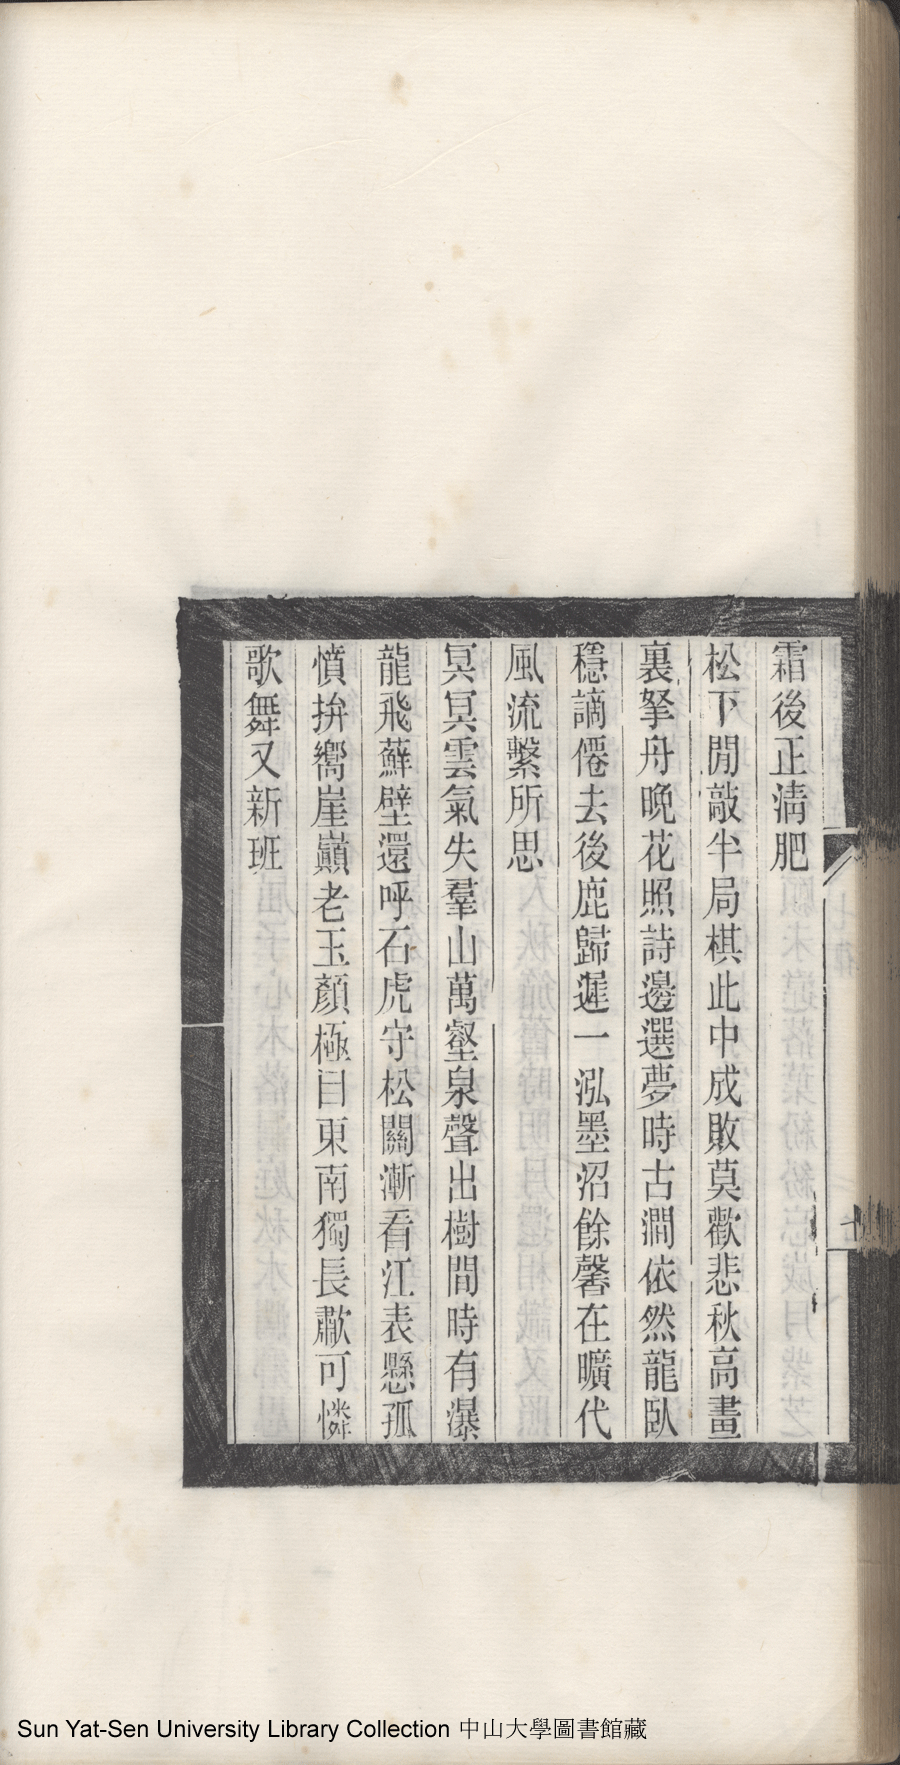 霜後正清肥
松下閒敲半局棋此中成敗莫歡悲秋高畫
裏拏舟晚花照詩邊選夢時古澗依然龍臥
穩謫僊去後鹿歸遲一泓墨沼餘馨在曠代
風流繫所思
冥冥雲氣失羣山萬壑泉聲出樹間時有瀑
龍飛蘚壁還呼石虎守松關漸看江表懸孤
憤拚嚮崖巔老玉顏極目東南獨長歗可憐
歌舞又新班
Sun Yat-Sen University Library Collection 中山大學圖書館藏